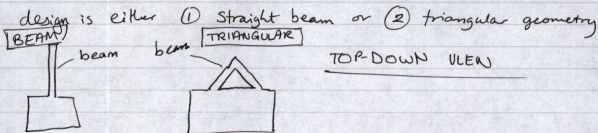 design is either ① Straight beam or ② triangular geometry
BEAM
TRIANGULAR
beam
beam
TOP-DOWN VIEW